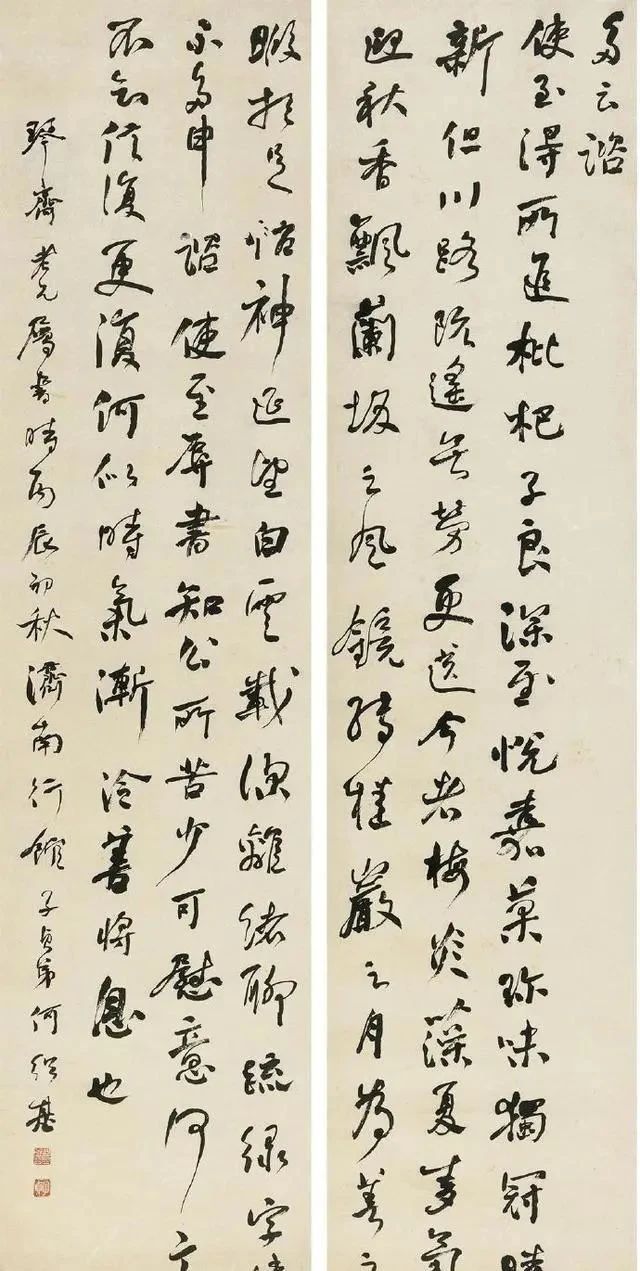 多云諮
使至得所進枇杷子良深至悅嘉菓珍味獨冠時
新但川路既遙無勞更送今者梅炎藻夏麥氣
迎秋香飄蘭坂之風鏡轉桂巖之月為善之
暇想足怡神延望白雲載深離緒聊疏綠字情
不多申諮使至辱書知公所苦少可慰意何言
不知信復更復何似時氣漸冷善將息也
琴齋老兄屬書時丙辰初秋濟南行館子貞弟何紹基